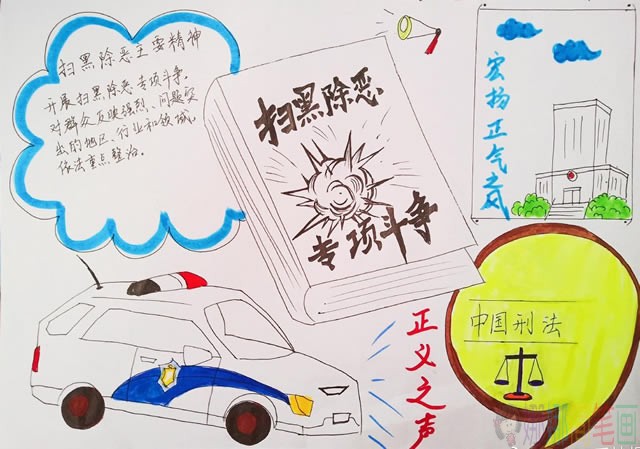 扫黑除恶主要精神
开展扫黑除恶专项斗争。
对群众反映强烈、问题突
出的地区、行业和领域,
依法重点整治。
扫黑除恶
专项斗争
宏扬正气之风
中国刑法
正义之声